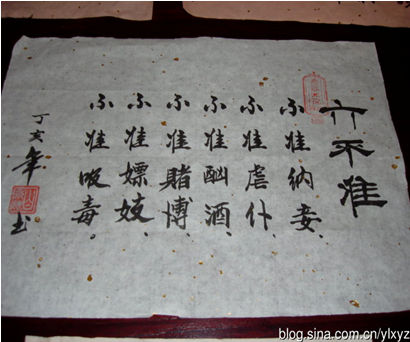 六不准
不准纳妾、
不准虐仆、
不准酗酒、
不准赌博、
不准嫖妓、
不准吸毒。
丁亥年
书
blog.sina.com.cn/ylxyz